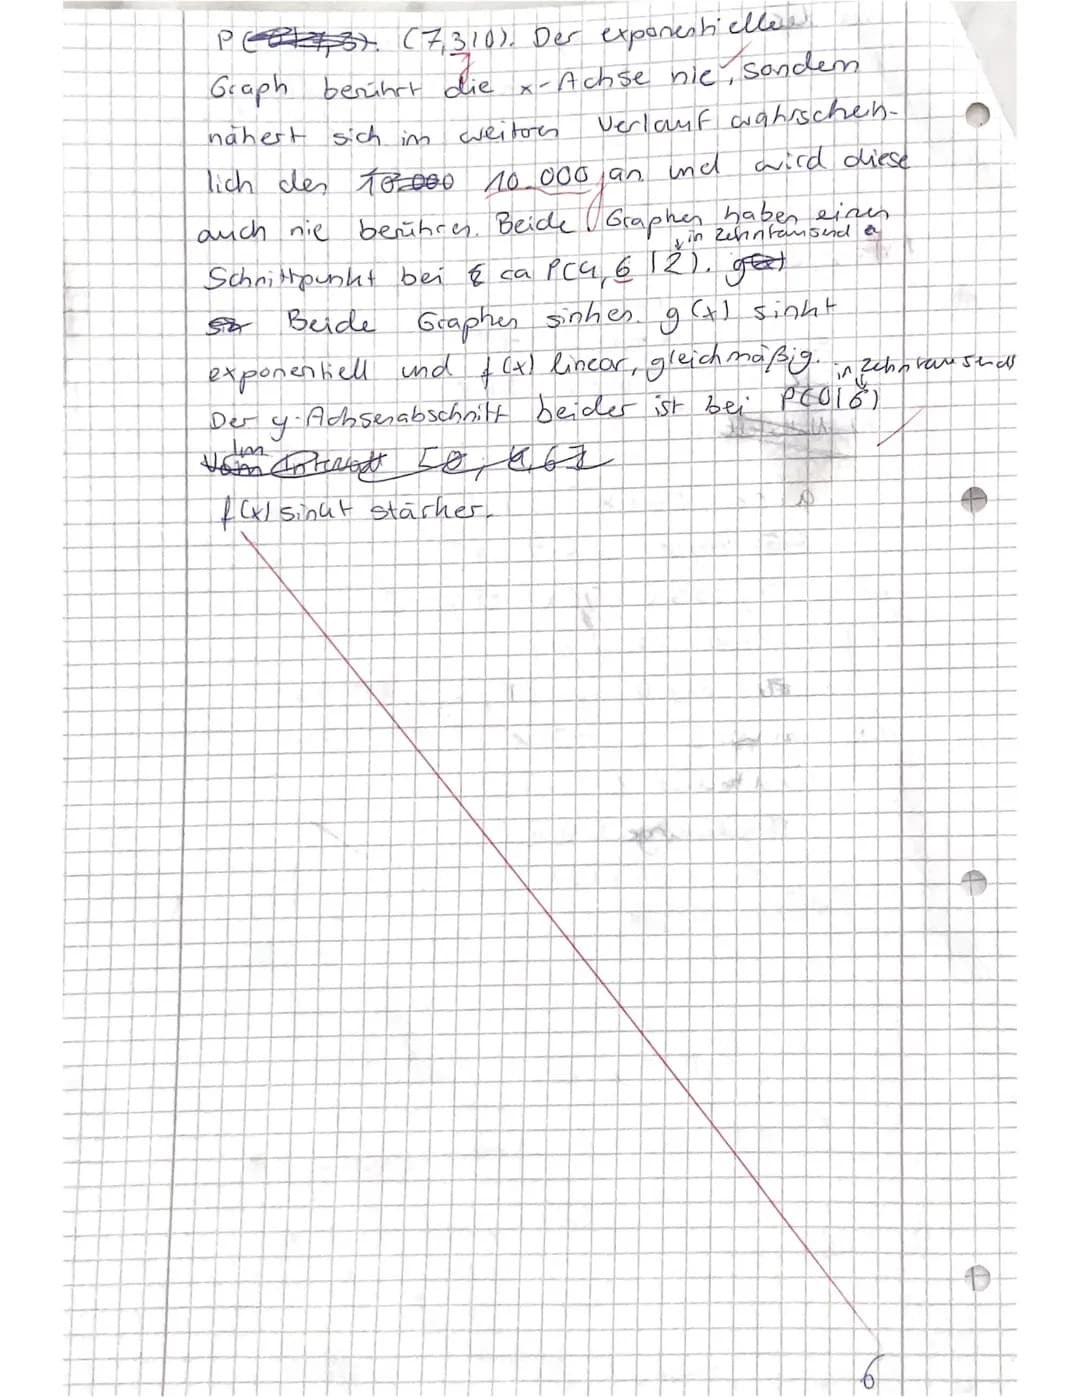 P (7,3|0). Der exponentielle
Graph berührt die x-Achse nie, sondern
nähert sich im weiteren Verlauf wahrschein-
lich den 10.000 10.000 an und wird diese
auch nie berühren. Beide Graphen haben einen
in Zehntausend
Schnittpunkt bei ca P(4,6|2).
Beide Graphen sinken. g(x) sinkt
exponentiell und f(x) linear, gleichmäßig.
in Zehntausend
Der y-Achsenabschnitt beider ist bei P(0|6)
Im
f(x) sinkt stärker.
6